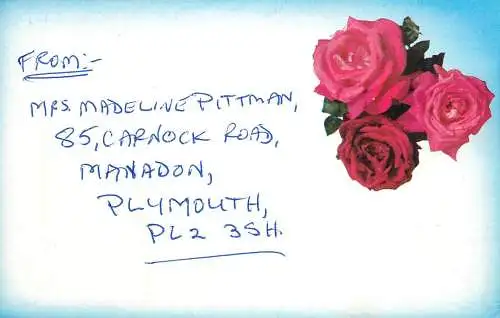 FROM:-
MRS. MADELINE PITTMAN,
85, CARNOCK ROAD,
MANADON,
PLYMOUTH,
PL2 3SH.